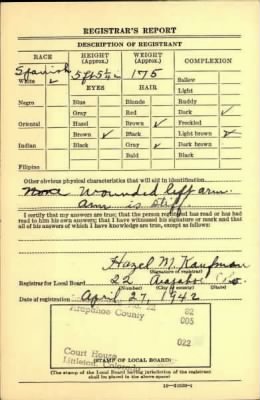 REGISTRAR'S REPORT
DESCRIPTION OF REGISTRANT
RACE HEIGHT (Approx.) WEIGHT (Approx.) COMPLEXION
Spanish 5 ft 5½ in 175
White ✓ Sallow
EYES HAIR Light
Negro Blue Blonde Ruddy
Gray Red Dark ✓
Oriental Hazel Brown ✓ Freckled
Brown ✓ Black Light brown ✓
Indian Black Gray ✓ Dark brown
Bald Black
Filipino
Other obvious physical characteristics that will aid in identification
None wounded left arm.
arm is stiff.
I certify that my answers are true; that the person registered has read or has had
read to him his own answers; that I have witnessed his signature or mark and that
all of his answers of which I have knowledge are true, except as follows:
Hazel M. Kaufman
(Signature of registrar)
Registrar for Local Board 22 Arapahoe Colo.
(Number) (City or county) (State)
Date of registration April 27, 1942
Arapahoe County 22
005
022
Court House
Littleton, Colorado
(STAMP OF LOCAL BOARD)
(The stamp of the Local Board having jurisdiction of the registrant
shall be placed in the above space)